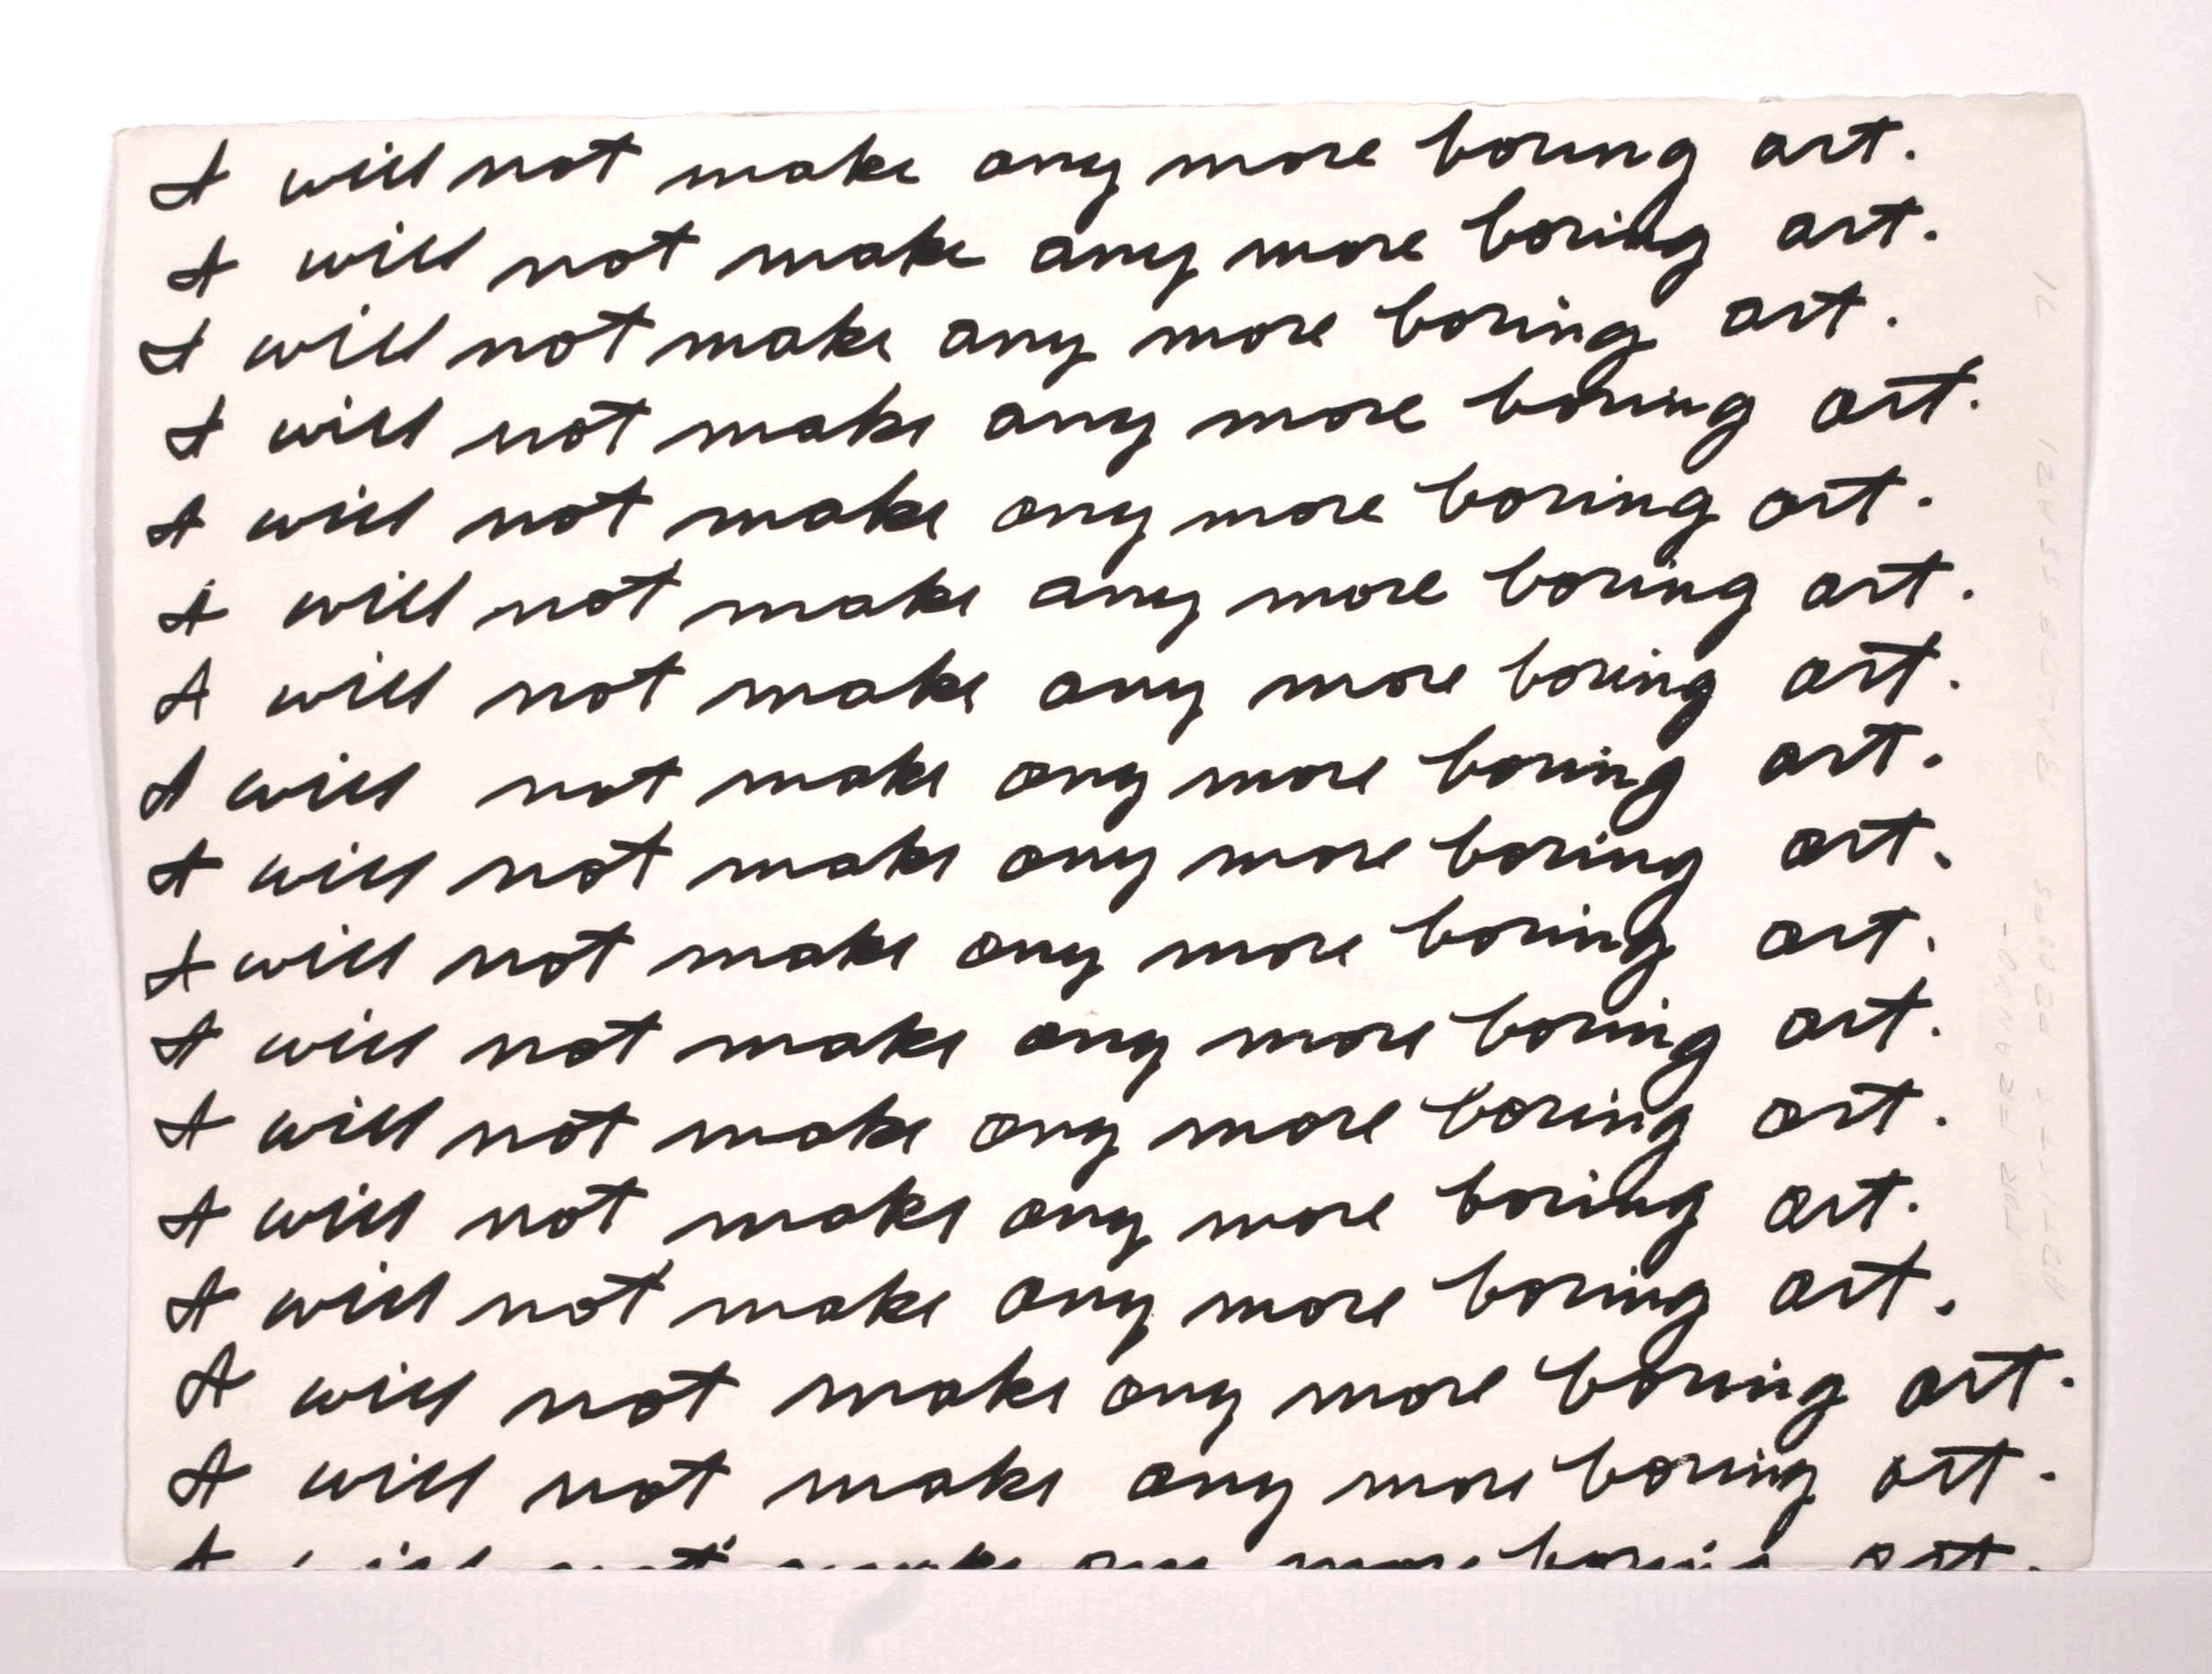 I will not make any more boring art.
I will not make any more boring art.
I will not make any more boring art.
I will not make any more boring art.
I will not make any more boring art.
I will not make any more boring art.
I will not make any more boring art.
I will not make any more boring art.
I will not make any more boring art.
I will not make any more boring art.
I will not make any more boring art.
I will not make any more boring art.
I will not make any more boring art.
I will not make any more boring art.
I will not make any more boring art.
I will not make any more boring art.
I will not make any more boring art.
FOR FRANÇO-
ARTIST'S PROOFS BALDESSARI 71